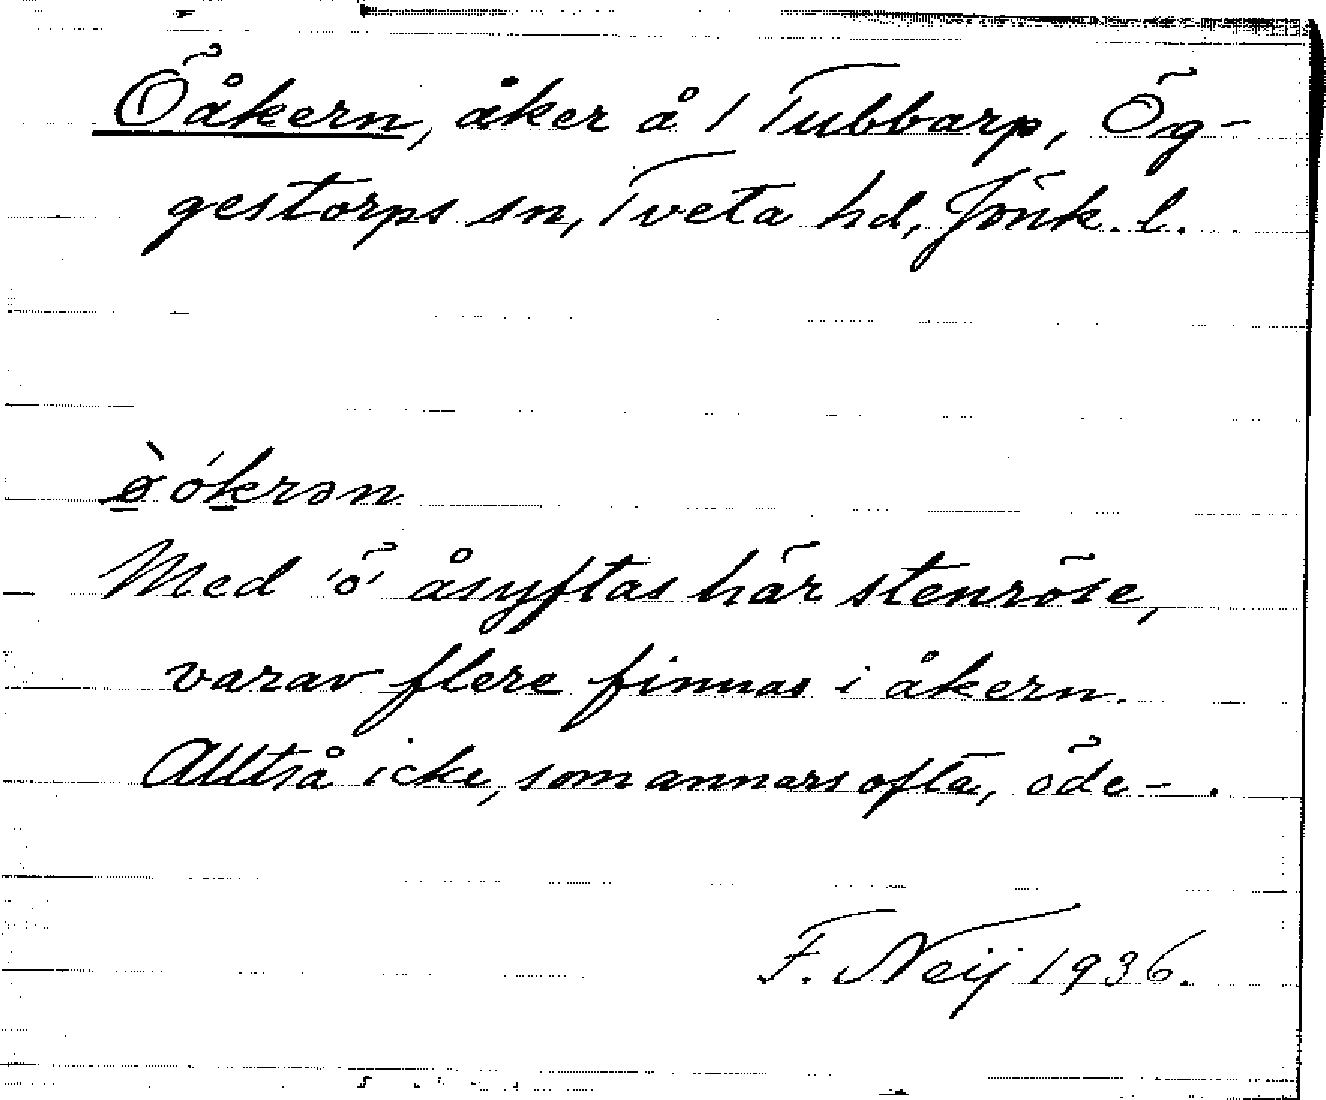 Öåkern, åker å 1 Tubbarp, Ög-
gestorps sn, Tveta hd, Jönk. l.
ø̀ ókrən
Med 'ö' åsyftas här stenröse,
varav flere finnas i åkern.
Alltså icke, som annars ofta, öde-.
F. Neij 1936.